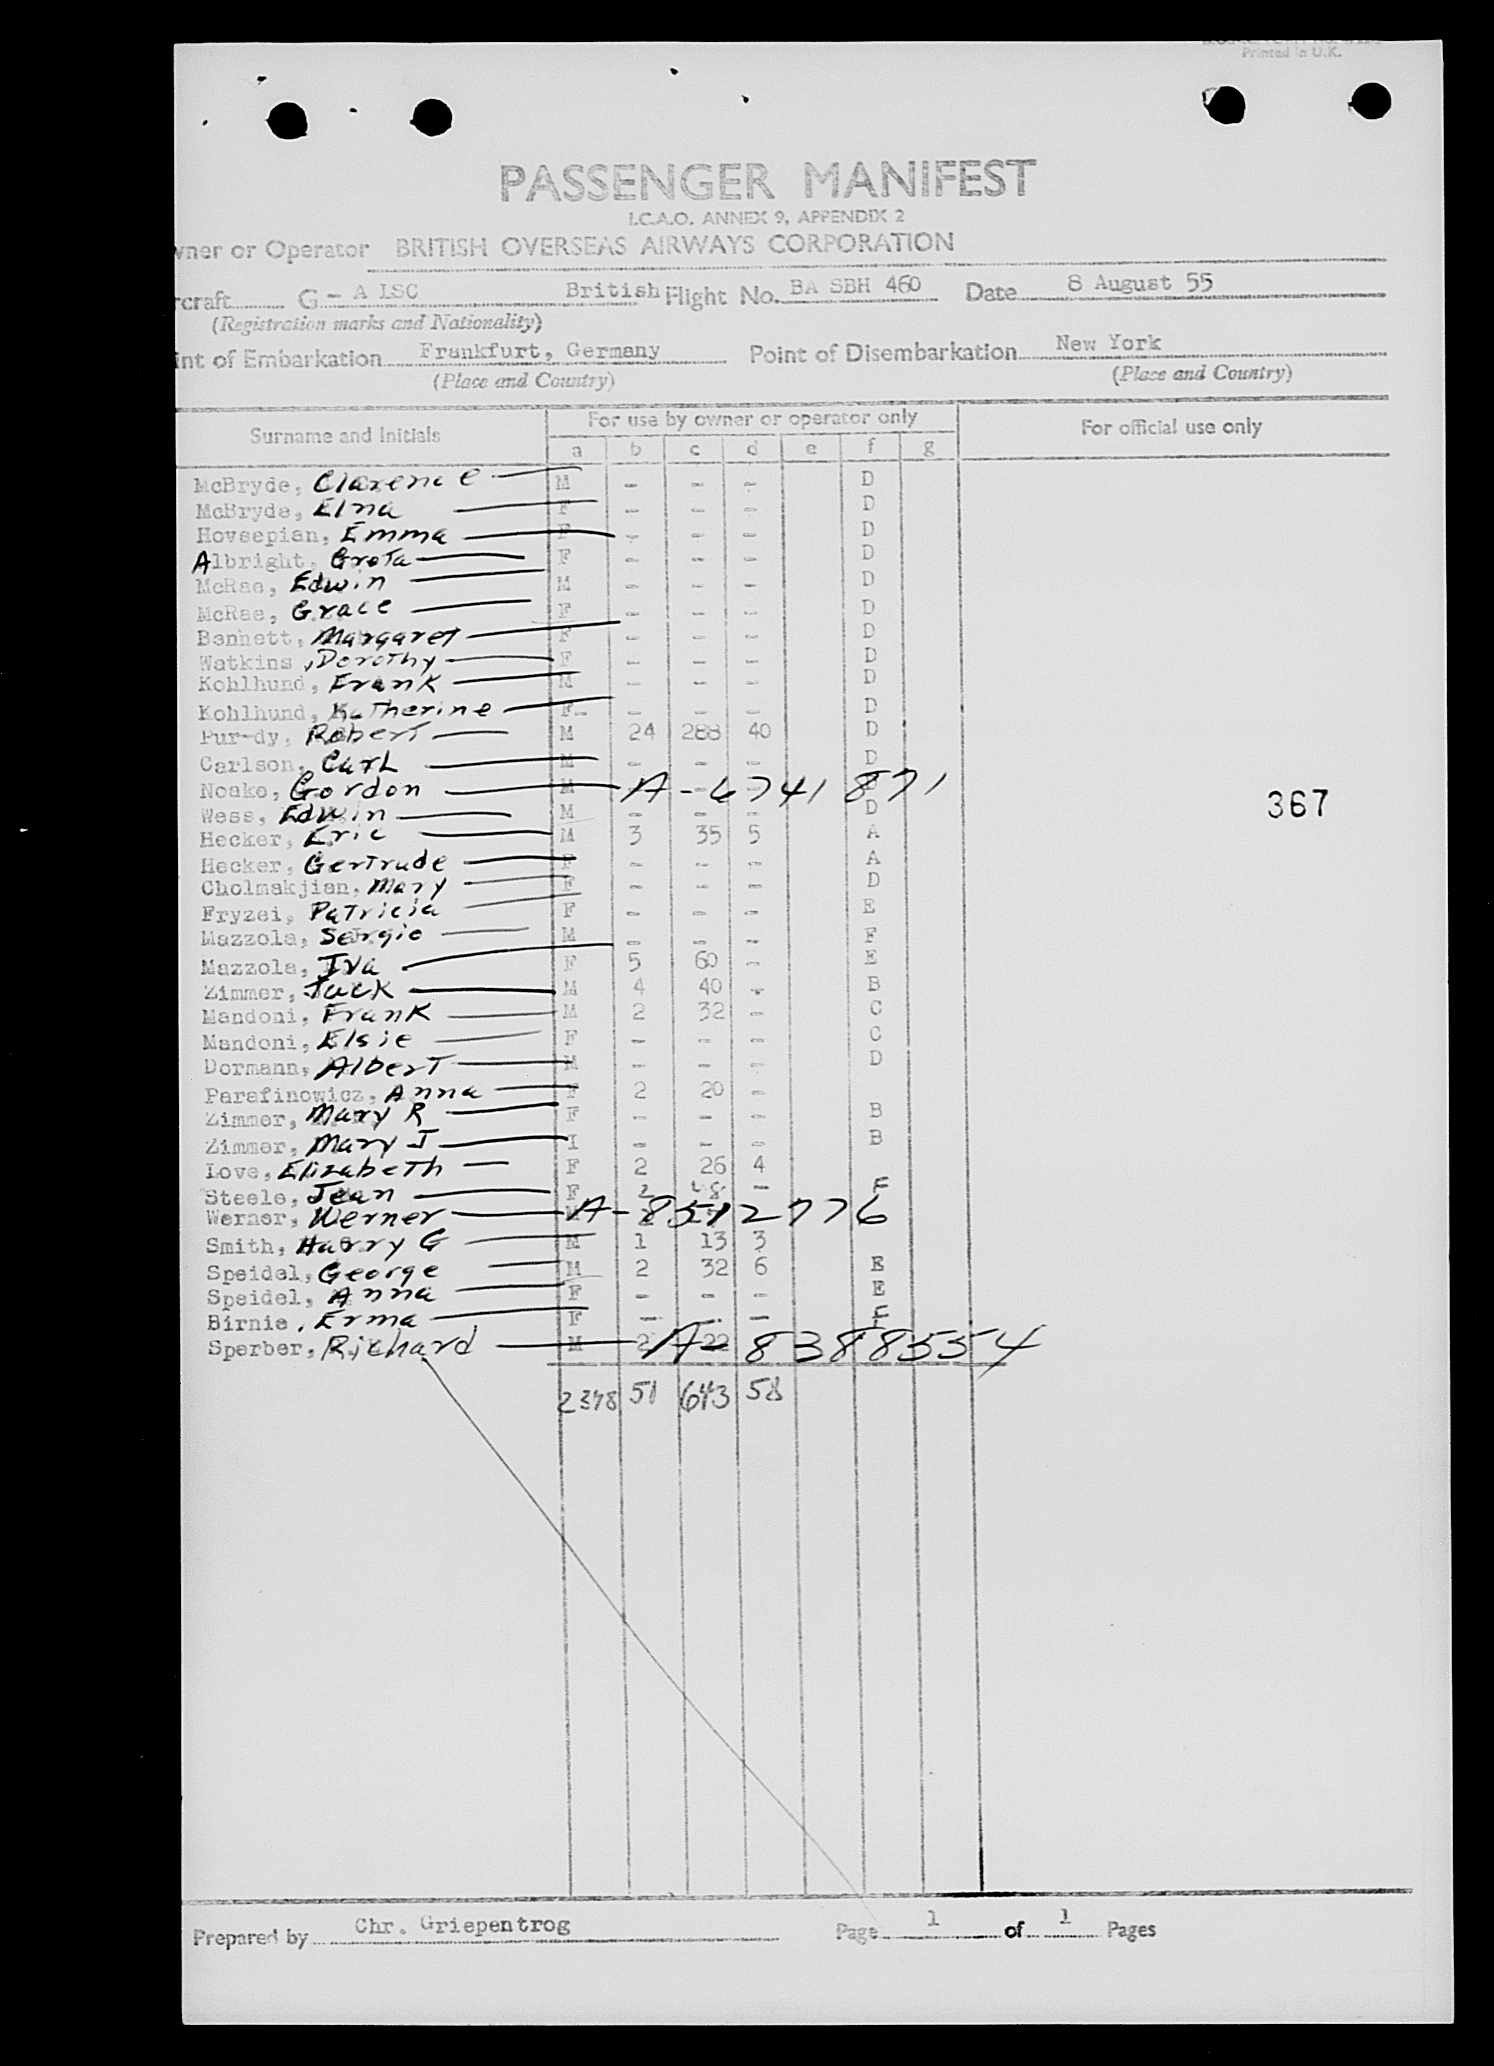 Printed in U.K.
PASSENGER MANIFEST
I.C.A.O. ANNEX 9, APPENDIX 2
wner or Operator BRITISH OVERSEAS AIRWAYS CORPORATION
rcraft G - A LSC British Flight No. BA SBH 460 Date 8 August 55
(Registration marks and Nationality)
int of Embarkation Frankfurt, Germany Point of Disembarkation New York
(Place and Country) (Place and Country)
Surname and Initials For use by owner or operator only For official use only
a b c d e f g
McBryde, Clarence M - - - D
McBryde, Elna F - - - D
Hovsepian, Emma F - - - D
Albright, Greta F - - - D
McRae, Edwin M - - - D
McRae, Grace F - - - D
Bennett, Margaret F - - - D
Watkins, Dorothy F - - - D
Kohlhund, Frank M - - - D
Kohlhund, Katherine F - - - D
Pur-dy, Robert M 24 288 40 D
Carlson, Carl M - - - D
Noake, Gordon M A-6741871
Wess, Edwin M - - - D
367
Hecker, Eric M 3 35 5 A
Hecker, Gertrude F - - - A
Cholmakjian, Mary F - - - D
Fryzei, Patricia F - - - E
Mazzola, Sergio M - - - F
Mazzola, Iva F 5 60 - E
Zimmer, Jack M 4 40 - B
Mandoni, Frank M 2 32 - C
Mandoni, Elsie F - - - C
Dormann, Albert M - - - D
Parafinowicz, Anna F 2 20 -
Zimmer, Mary R F - - - B
Zimmer, Mary J I - - - B
Love, Elizabeth F 2 26 4
Steele, Jean F 2 48 - F
Werner, Werner M A-8512776
Smith, Harry G M 1 13 3
Speidel, George M 2 32 6 E
Speidel, Anna F - - - E
Birnie, Erma F - - - F
Sperber, Richard M 2 22 A-8388554
2378 51 643 58
Prepared by Chr. Griepentrog Page 1 of 1 Pages